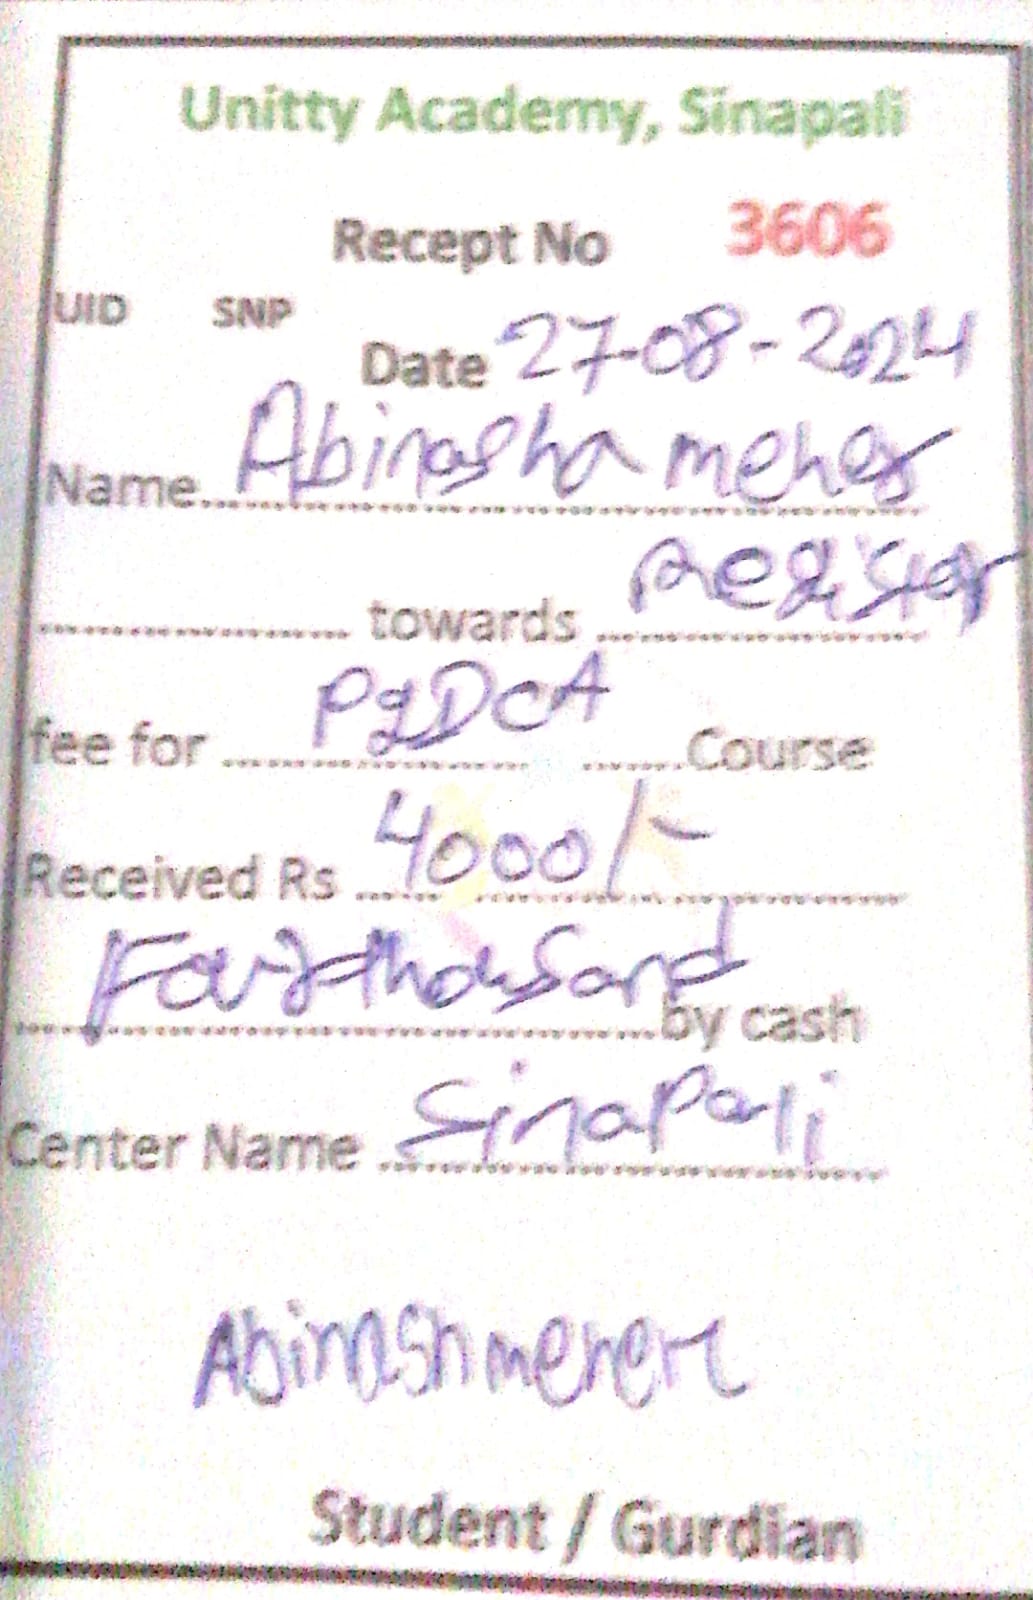 Unitty Academy, Sinapali
Recept No 3606
UID SNP
Date 27-08-2024
Name Abinasha meher
towards Register
fee for PgDCA Course
Received Rs 4000/-
Four thousand by cash
Center Name Sinapali
Abinash meher
Student / Gurdian